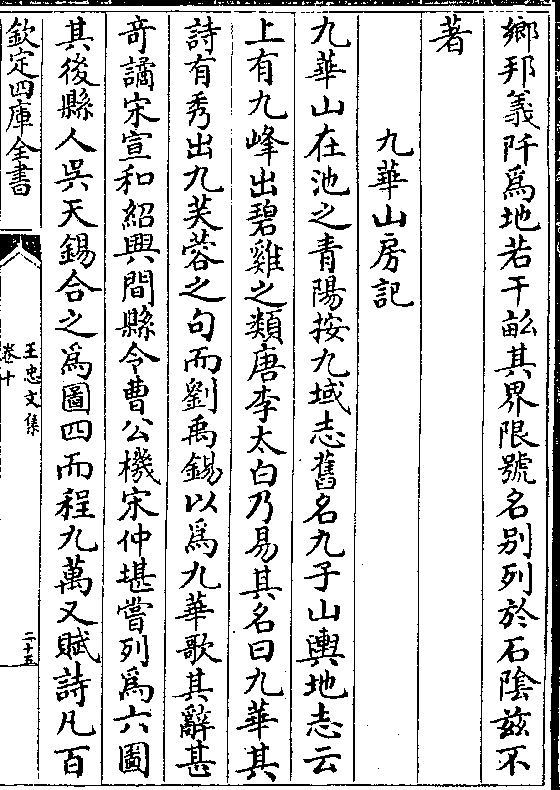 鄉邦義阡爲地若干畝其界限號名别列於石隂兹不
著
九華山房記
九華山在池之青陽按九域志舊名九子山輿地志云
上有九峰出碧雞之類唐李太白乃易其名曰九華其
詩有秀出九芙蓉之句而劉禹錫以爲九華歌其辭甚
竒譎宋宣和紹興間縣令曹公機宋仲堪嘗列爲六圖
其後縣人吳天錫合之爲圖四而程九萬又賦詩凡百
欽定四庫全書
王忠文集
卷十
二十五